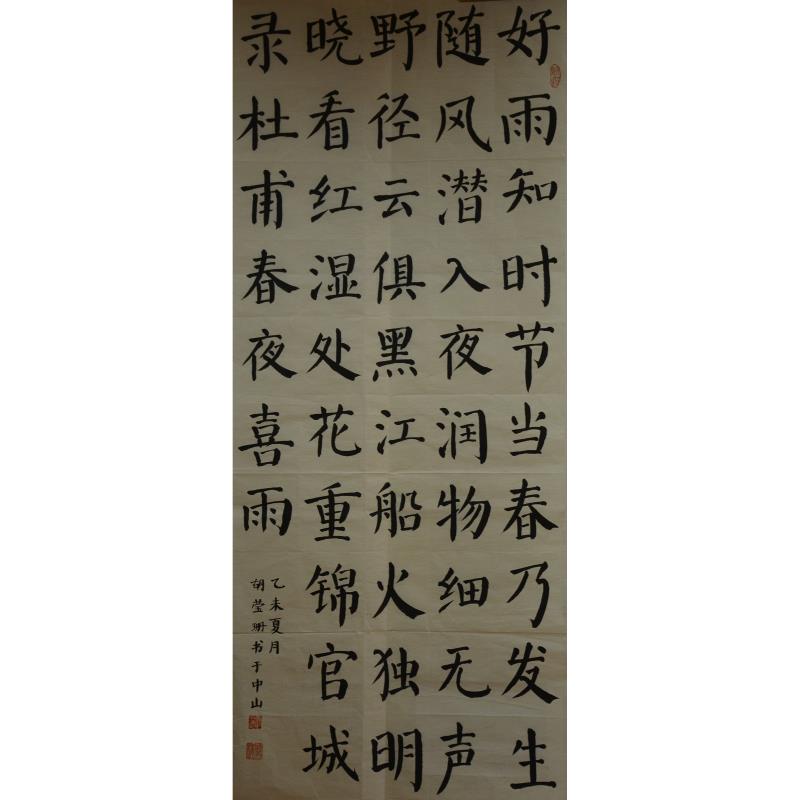 好雨知时节当春乃发生
随风潜入夜润物细无声
野径云俱黑江船火独明
晓看红湿处花重锦官城
录杜甫春夜喜雨
乙未夏月
胡莹珊书于中山